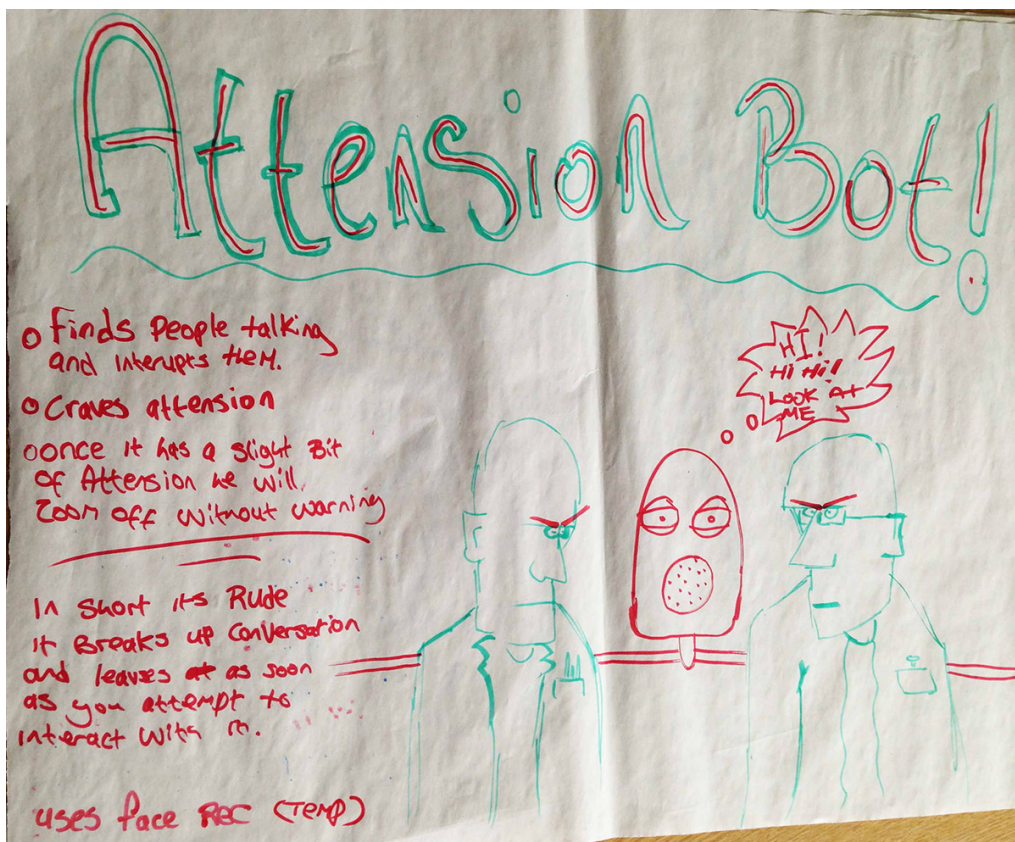 Attension Bot!
o Finds People talking
and interupts them.
o Craves attention
o once it has a slight Bit
of Attension he will
Zoom off without warning
HI!
Hi Hi!!
LOOK AT
ME
In short its Rude
it Breaks up conversation
and leavses as soon
as you attempt to
interact with it.
uses face REC (TEMP)